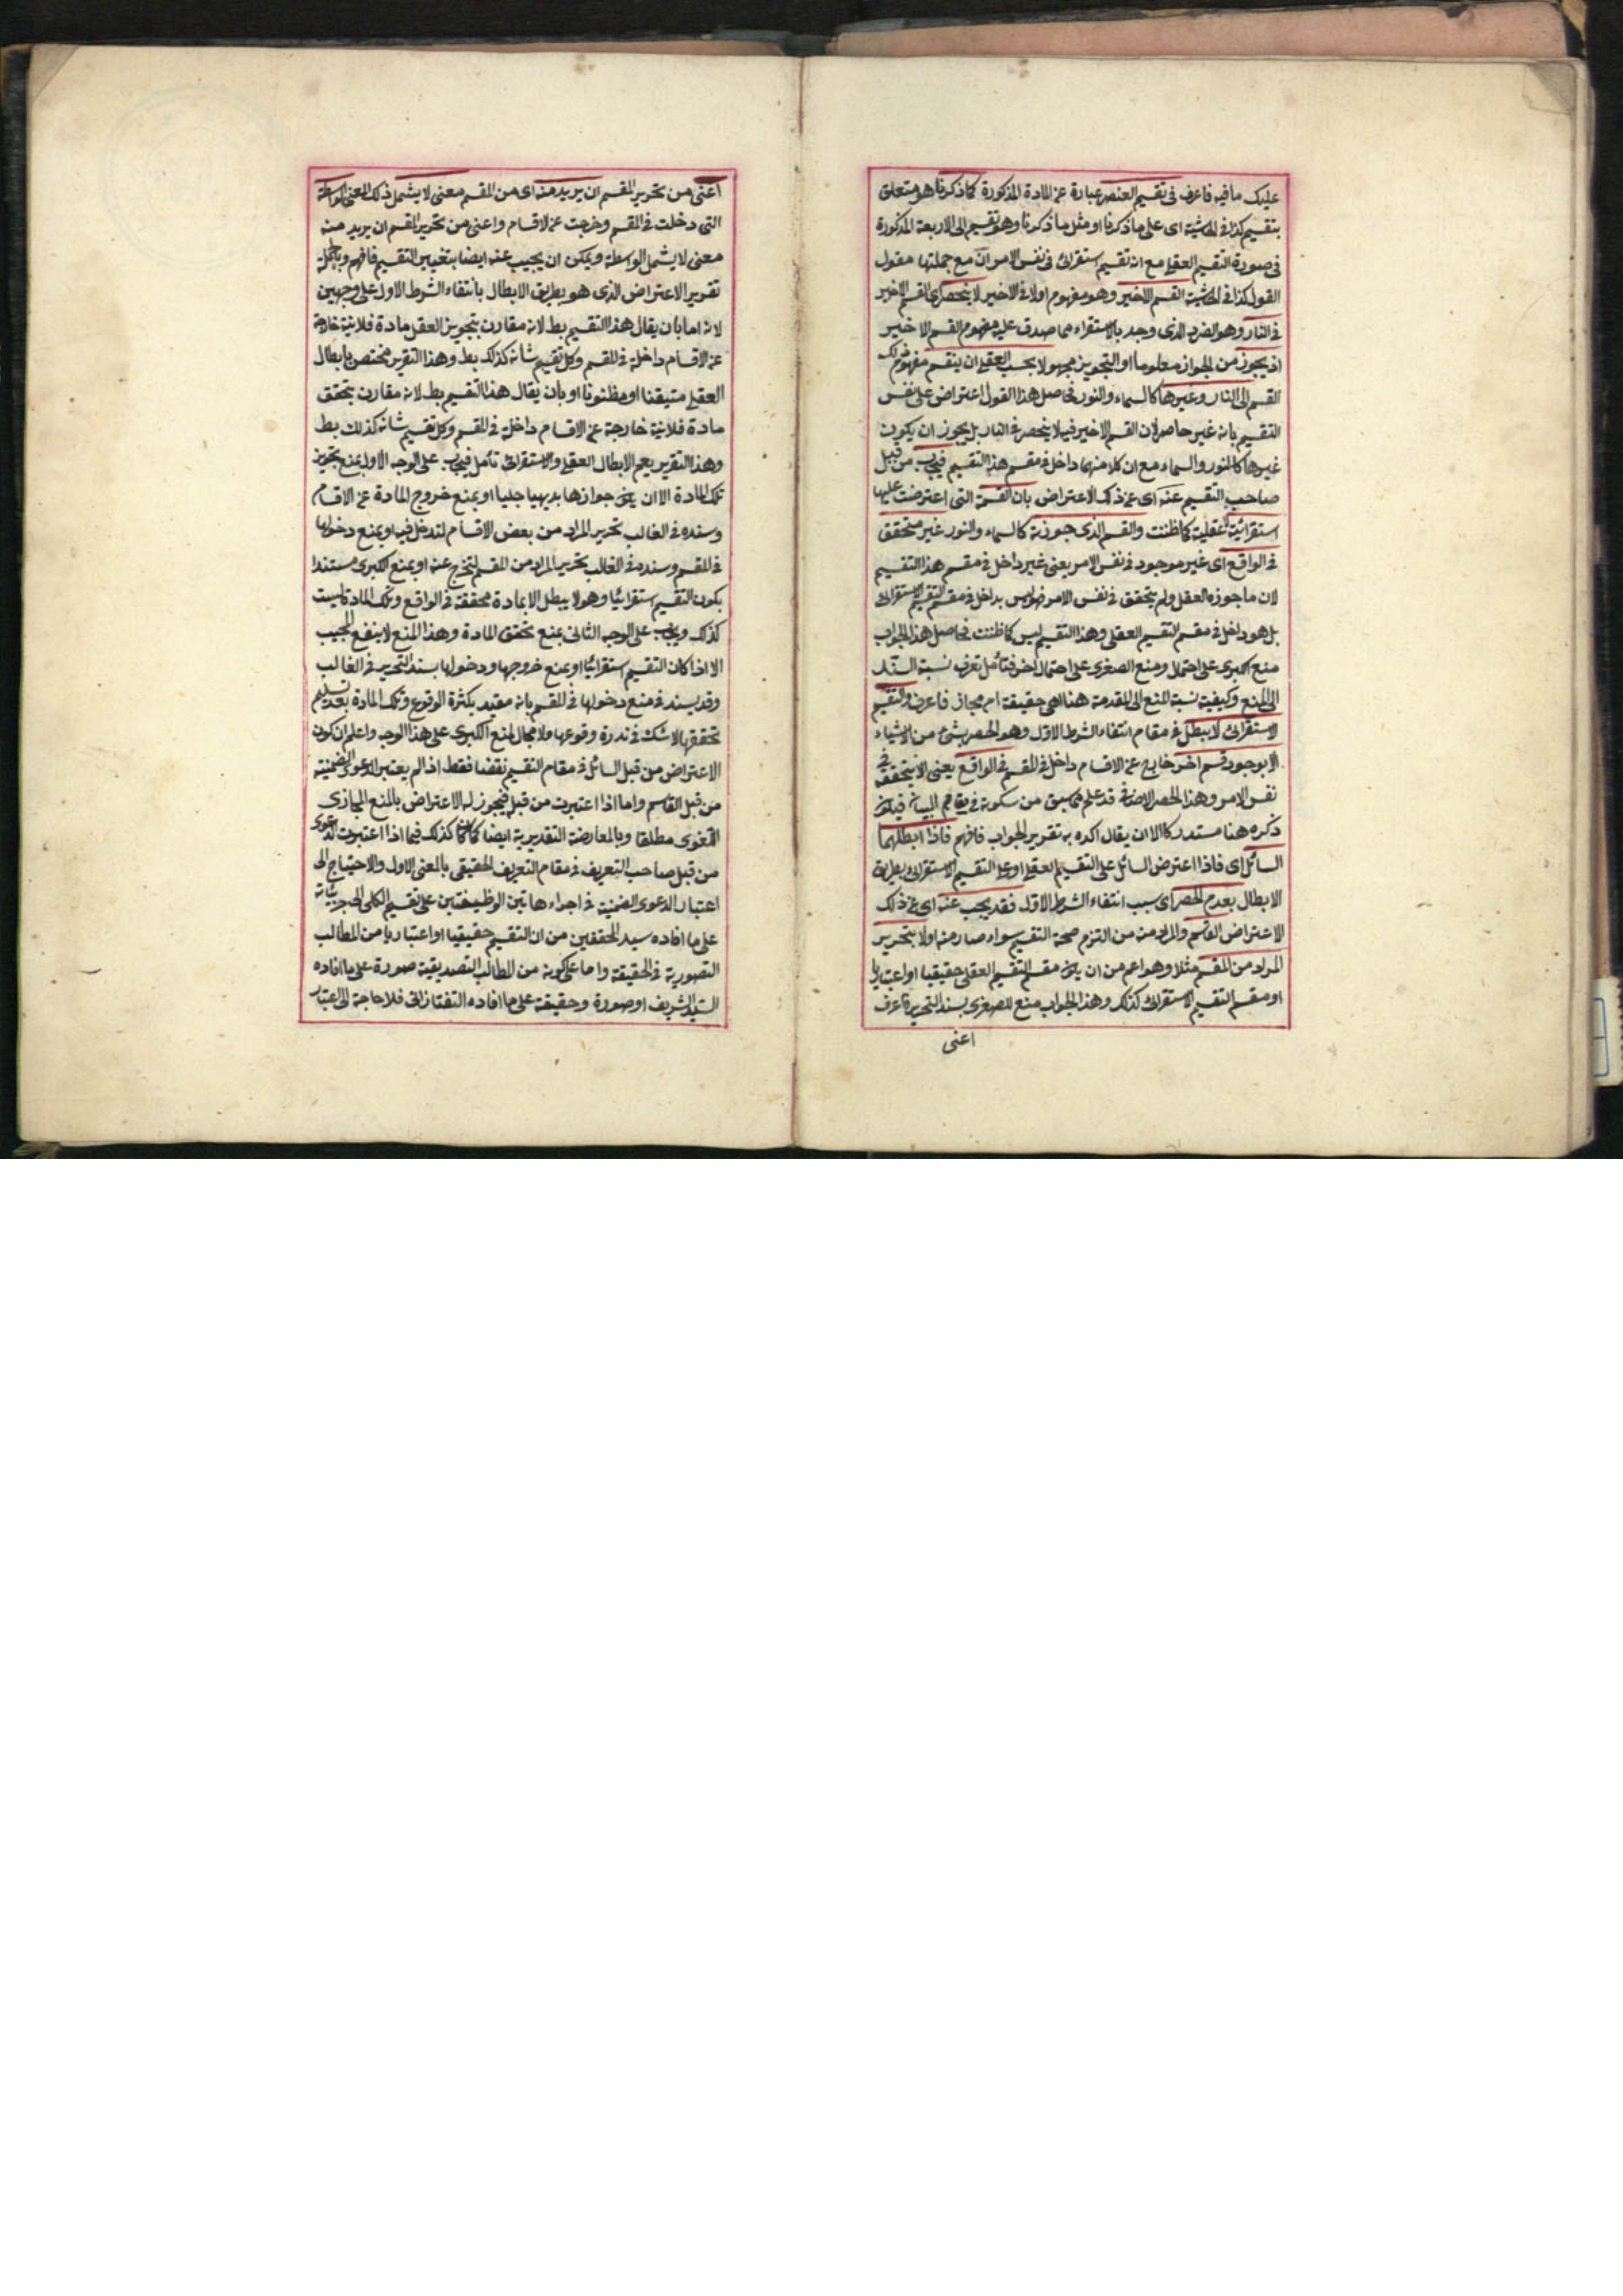 عليك ما فيه فاعرف فى تقسيم العنصر عبارة عن المادة المذكورة كما ذكرنا هو متعلق
بتقسيم كذا فى الحاشية اى على ما ذكرنا او مثل ما ذكرنا وهو تقسيم الى الاربعة المذكورة
فى صورة التقسيم العقلى مع انه تقسيم استقرائى فى نفس الامر ان مع جملتها مقول
القول كذا فى الحاشية القسم الاخير وهو مفهوم اولا فى الاخير لا ينحصر اى القسم الاخير
فى النار وهو الفرد الذى وجد بالاستقراء مما صدق عليه مفهوم القسم الاخير
اذ يجوز من الجواز معلوما او التجويز مجهولا بحسب العقل ان ينقسم مفهوم ذلك
القسم الى النار وغيرها كالسماء والنور فحاصل هذا القول اعتراض على نفس
التقسيم بانه غير حاصر لان القسم الاخير فيه لا ينحصر فى النار بل يجوز ان يكون
غيرها كالنور والسماء مع ان كلا منهما داخل فى مقسم هذا التقسيم فيجاب من قبل
صاحب التقسيم عنه اى عن ذلك الاعتراض بان القسمة التى اعترضت عليها
استقرائية لا عقلية كما ظننت والقسم الذى جوزته كالسماء والنور غير متحقق
فى الواقع اى غير موجود فى نفس الامر يعنى غير داخل فى مقسم هذا التقسيم
لان ما جوزه العقل ولم يتحقق فى نفس الامر فهو ليس بداخل فى مقسم التقسيم الاستقرائى
بل هو داخل فى مقسم التقسيم العقلى وهذا التقسيم ليس كما ظننت فحاصل هذا الجواب
منع الكبرى على احتمال ومنع الصغرى على احتمال اخر فتأمل تعرف نسبة السند
الى المنع وكيفية نسبة المنع الى المقدمة هنا اهى حقيقة ام مجاز فاعرف والتقسيم
الاستقرائى لا يبطل فى مقام انتفاء الشرط الاول وهو الحصر بشئ من الاشياء
الا بوجود قسم اخر خارج عن الاقسام داخل فى المقسم فى الواقع يعنى الا بتحققه فى
نفس الامر وهذا الحصر الاضافى قد علم مما سبق من سكوته فى مقام البيان فيكون
ذكره هنا مستدركا الا ان يقال اكده به تقرير الجواب فافهم فاذا ابطلهما
السائل اى فاذا اعترض السائل على التقسيم العقلى او على التقسيم الاستقرائى بطريق
الابطال بعدم الحصر اى بسبب انتفاء الشرط الاول فقد يجيب عنه اى عن ذلك
الاعتراض القاسم والمراد منه من التزم صحة التقسيم سواء صار منه اولا بتحرير
المراد من المقسم مثلا وهو اعم من ان يكون مقسم التقسيم العقلى حقيقيا او اعتباريا
او مقسم التقسيم الاستقرائى كذلك وهذا الجواب منع للصغرى بسند التحرير فاعرف
اعنى
اعنى من تحرير المقسم ان يريد منه اى من المقسم معنى لا يشمل ذلك المعنى الواسطة
التى دخلت فى المقسم وخرجت عن الاقسام واعنى من تحرير القسم ان يريد منه
معنى لا يشمل الواسطة ويمكن ان يجيب عنه ايضا بتغيير التقسيم فافهم وبالجملة
تقرير الاعتراض الذى هو بطريق الابطال بانتفاء الشرط الاول على وجهين
لانه اما بان يقال هذا التقسيم بط لانه مقارن بتجويز العقل مادة فلانية خارجة
عن الاقسام داخلة فى المقسم وكل تقسيم شانه كذلك بط وهذا التقرير مختص بابطال
العقلى متيقنا او مظنونا او بان يقال هذا التقسيم بط لانه مقارن بتحقق
مادة فلانية خارجة عن الاقسام داخلة فى المقسم وكل تقسيم شانه كذلك بط
وهذا التقرير يعم الابطال العقلى والاستقرائى تأمل فيجاب على الوجه الاول بمنع تجويز
تلك المادة الا ان يكون جوازها بديهيا جليا او بمنع خروج المادة عن الاقسام
وسنده فى الغالب تحرير المراد من بعض الاقسام لتدخل فيه او بمنع دخولها
فى المقسم وسنده فى الغالب تحرير المراد من المقسم لتخرج عنه او بمنع الكبرى مستندا
بكون التقسيم استقرائيا وهو لا يبطل الا بمادة محققة فى الواقع وتلك المادة ليست
كذلك ويجاب على الوجه الثانى بمنع تحقق المادة وهذا المنع لا ينفع المجيب
الا اذا كان التقسيم استقرائيا او بمنع خروجها ودخولها بسند التحرير فى الغالب
وقد يسند فى منع دخولها فى المقسم بانه مقيد بكثرة الوقوع وتلك المادة بعد تسليم
تحققها لا شك فى ندرة وقوعها ولا مجال لمنع الكبرى على هذا الوجه واعلم ان كون
الاعتراض من قبل السائل فى مقام التقسيم نقضا فقط اذا لم يعتبر الدعوى الضمنية
من قبل القاسم واما اذا اعتبرت من قبل فيجوز له الاعتراض بالمنع المجازى
اللغوى مطلقا وبالمعارضة التقديرية ايضا كما كان كذلك فيما اذا اعتبرت الدعوى
من قبل صاحب التعريف فى مقام التعريف الحقيقى بالمعنى الاول والاحتياج الى
اعتبار الدعوى الضمنية فى اجراء هاتين الوظيفتين على تقسيم الكلى الى جزئياته
على ما افاده سيد المحققين من ان التقسيم حقيقيا او اعتباريا من المطالب
التصورية فى الحقيقة واما على كونه من المطالب التصديقية صورة على ما افاده
السيد الشريف او صورة وحقيقة على ما افاده التفتازانى فلا حاجة الى اعتبار